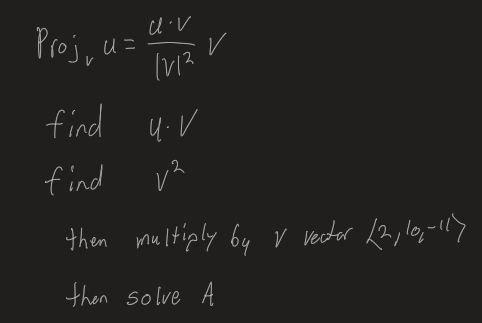 Proj_v u = u·v / |v|² v
find u·v
find v²
then multiply by v vector ⟨2, 10, -11⟩
then solve A